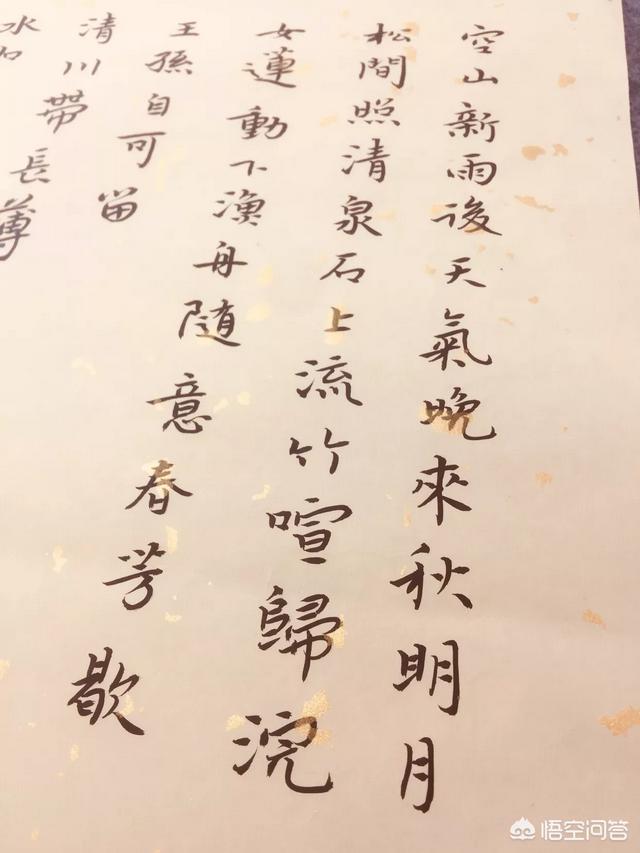 空山新雨後天氣晚來秋明月
松間照清泉石上流竹喧歸浣
女蓮動下漁舟隨意春芳歇
王孫自可留
清川帶長薄
水
悟空问答